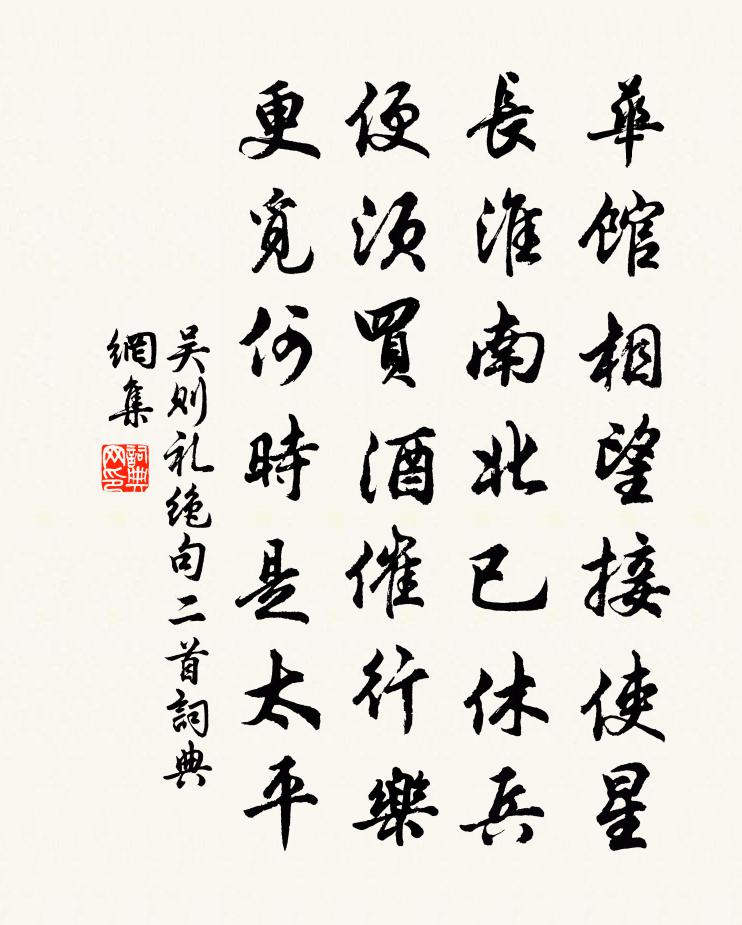 華館相望接使星
長淮南北已休兵
便須買酒催行樂
更覓何時是太平
吴则礼绝句二首詞典
網集
詞典网印